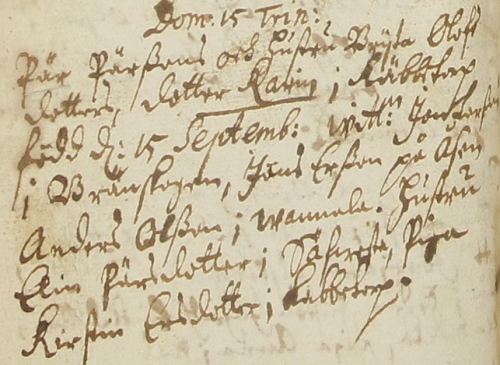 Dom: 15 Trin:
Pär Pärssons och Hustru Brijta Olofz
dotters, dotter Karin i Kabbetorp
född d: 15 Septemb: witt: Jon Perss:
i Bränskogen, Jöns Ersson på Åsen
Anders Olsson i Wannala. Hustru
Elin Pärsdotter i Säfwesta, Piga
Kirstin Ersdotter i Kabbetorp.